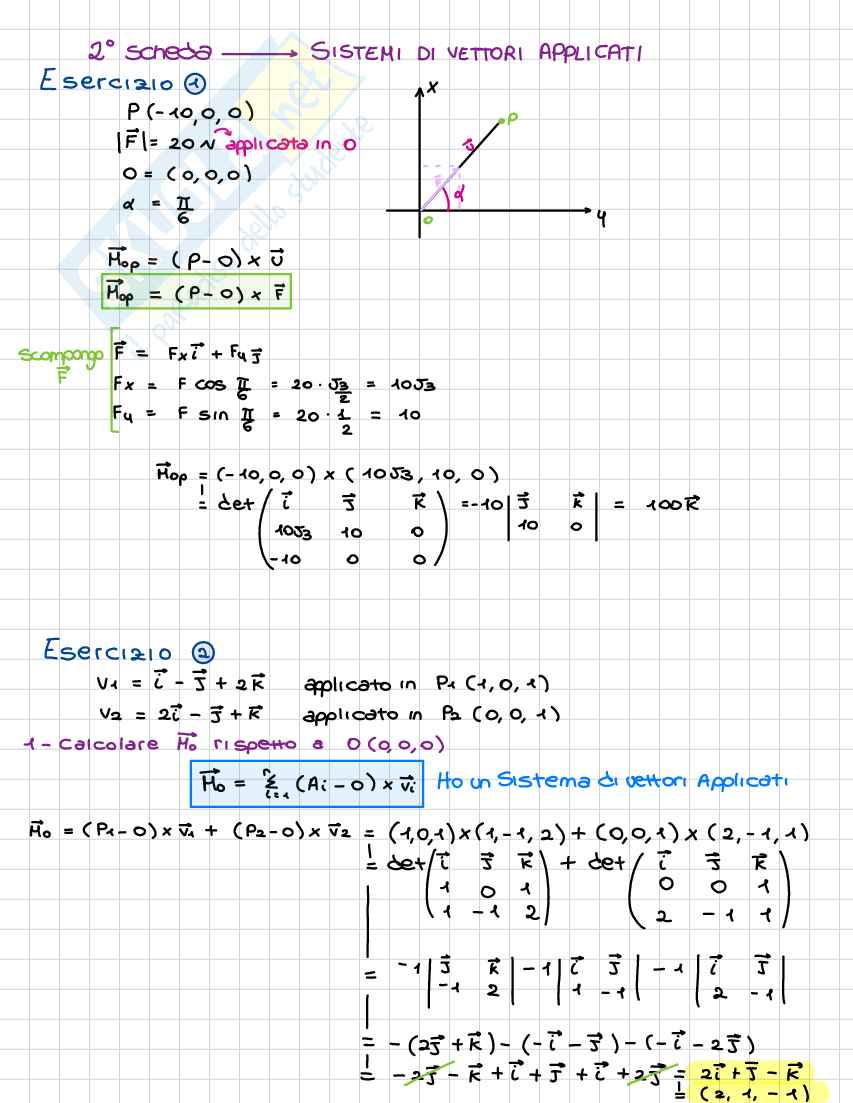 2° scheda → SISTEMI DI VETTORI APPLICATI
Esercizio 1
P(-10,0,0)
|F⃗|= 20 N applicata in O
O = (0,0,0)
α = π/6
x
P
u⃗
F⃗
α
O
y
M⃗op = (P-O) × U⃗
M⃗op = (P-O) × F⃗
Scompongo F⃗
F⃗ = Fx i⃗ + Fy j⃗
Fx = F cos π/6 = 20 · √3/2 = 10√3
Fy = F sin π/6 = 20 · 1/2 = 10
M⃗op = (-10,0,0) × (10√3, 10, 0)
= det( i⃗ j⃗ k⃗ = -10 | j⃗ k⃗ | = 100k⃗
10√3 10 0 10 0
-10 0 0 )
Esercizio 2
V1 = i⃗ - j⃗ + 2k⃗ applicato in P1 (1,0,1)
V2 = 2i⃗ - j⃗ + k⃗ applicato in P2 (0,0,1)
1- Calcolare M⃗o rispetto a O(0,0,0)
M⃗o = Σ i=1 n (Ai-O) × v⃗i Ho un Sistema di vettori Applicati
M⃗o = (P1-O) × v⃗1 + (P2-O) × v⃗2 = (1,0,1)×(1,-1,2)+(0,0,1)×(2,-1,1)
= det( i⃗ j⃗ k⃗ + det( i⃗ j⃗ k⃗
1 0 1 0 0 1
1 -1 2 ) 2 -1 1 )
= -1 | j⃗ k⃗ | -1 | i⃗ j⃗ | -1 | i⃗ j⃗ |
-1 2 1 -1 2 -1
= -(2j⃗+k⃗)-(-i⃗-j⃗)-(-i⃗-2j⃗)
= -2j⃗-k⃗+i⃗+j⃗+i⃗+2j⃗ = 2i⃗+j⃗-k⃗
= (2,1,-1)